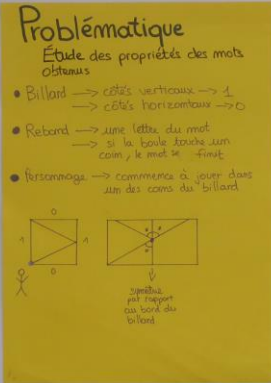 Problématique
Étude des propriétés des mots
obtenus
• Billard → côtés verticaux → 1
→ côtés horizontaux → 0
• Rebond → une lettre du mot
→ si la boule touche un
coin, le mot se finit
• Personnage → commence à jouer dans
un des coins du billard
0
1 1
0
symétrie
par rapport
au bord du
billard